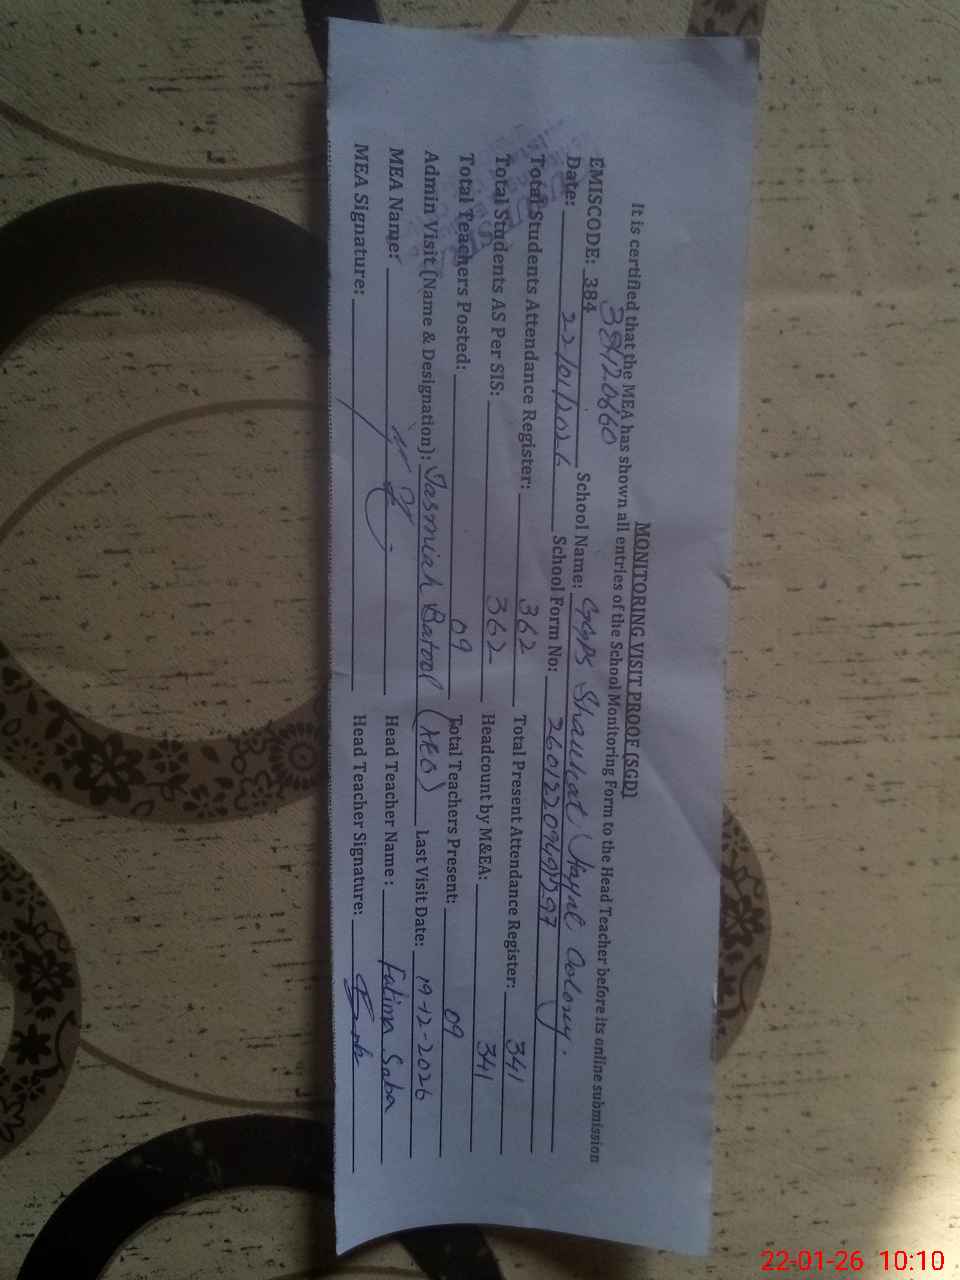 MONITORING VISIT PROOF (SGD)
It is certified that the MEA has shown all entries of the School Monitoring Form to the Head Teacher before its online submission
38420660
EMISCODE: 384 School Name: GGPS Shaukat Colony.
Date: 22/01/2026 School Form No:
Total Students Attendance Register: 362 Total Present Attendance Register: 341
Total Students AS Per SIS: 362 Headcount by M&EA: 341
Total Teachers Posted: 09 Total Teachers Present: 09
Admin Visit (Name & Designation): Jasmiah Batool (AEO) Last Visit Date: 19-12-2026
MEA Name: Head Teacher Name: Fatima Saba
MEA Signature: Head Teacher Signature:
22-01-26 10:10